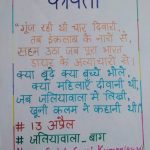 कविता
"गूंज रही थी चार दिवारी,
तब इंकलाब के नारों से,
सहम उठा जब पूरा भारत,
डायर के अत्याचारों से।
क्या बूढ़े क्या बच्चे भोले,
क्या महिलाएं दीवानी थी,
जब जलियावाला में लिखी,
खूनी कलम ने कहानी थी।
# 13 अप्रैल
# जलियावाला_बाग